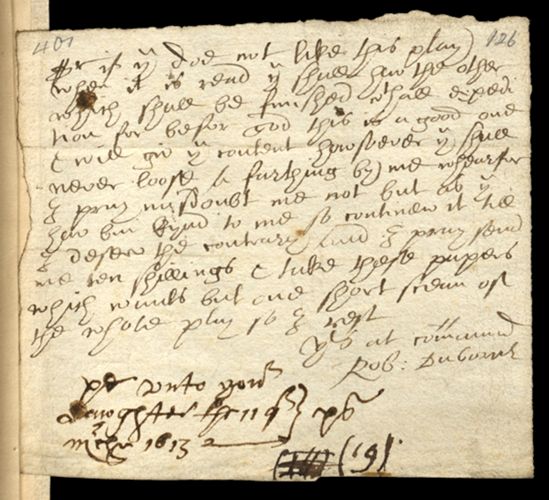 401 126
Mr if yu doe not like this play
when it is read yu shall hav the other
which shall be finished wth all expedi
tion for befor god this is a good one
& will giv yu content howsoever yu shall
never loose a farthing by me whearfor
I pray misdoubt me not but as yu
hav bin kynd to me so continew it till
I deserv the contrary and I pray send
me ten shillings & take these papers
which wants but one short scean of
the whole play so I rest
yrs at commaund
Rob: Daborne
pd unto your
dawghter
1613
(19)